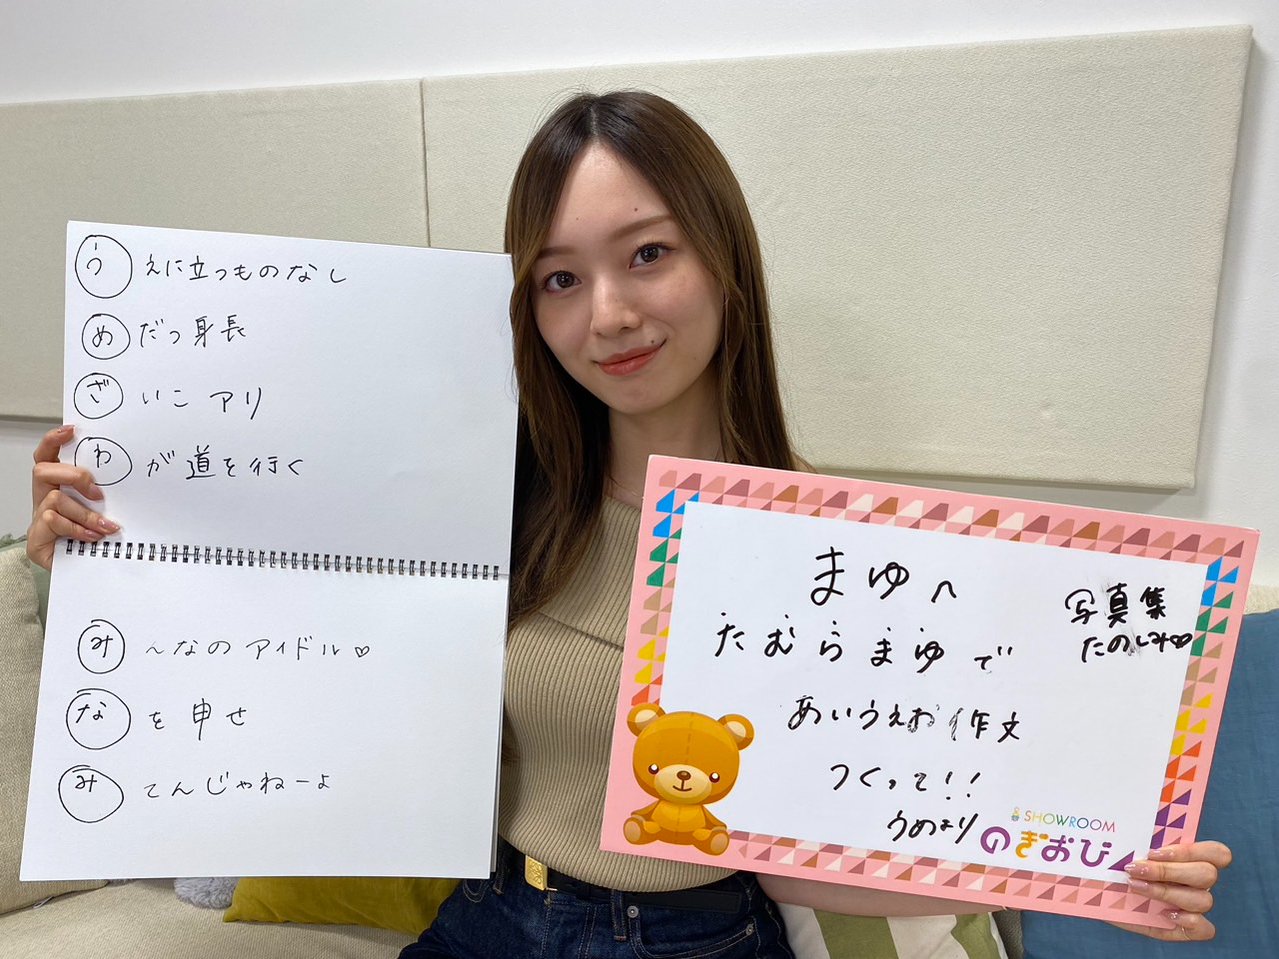 うえに立つものなし
めだつ身長
ざいこアリ
わが道を行く
み〜なのアイドル♡
なを申せ
みてんじゃねーよ
まゆへ
たむらまゆで
あいうえお作文
つくって!!
うめより
写真集
たのしみ♡
SHOWROOM
のぎおび